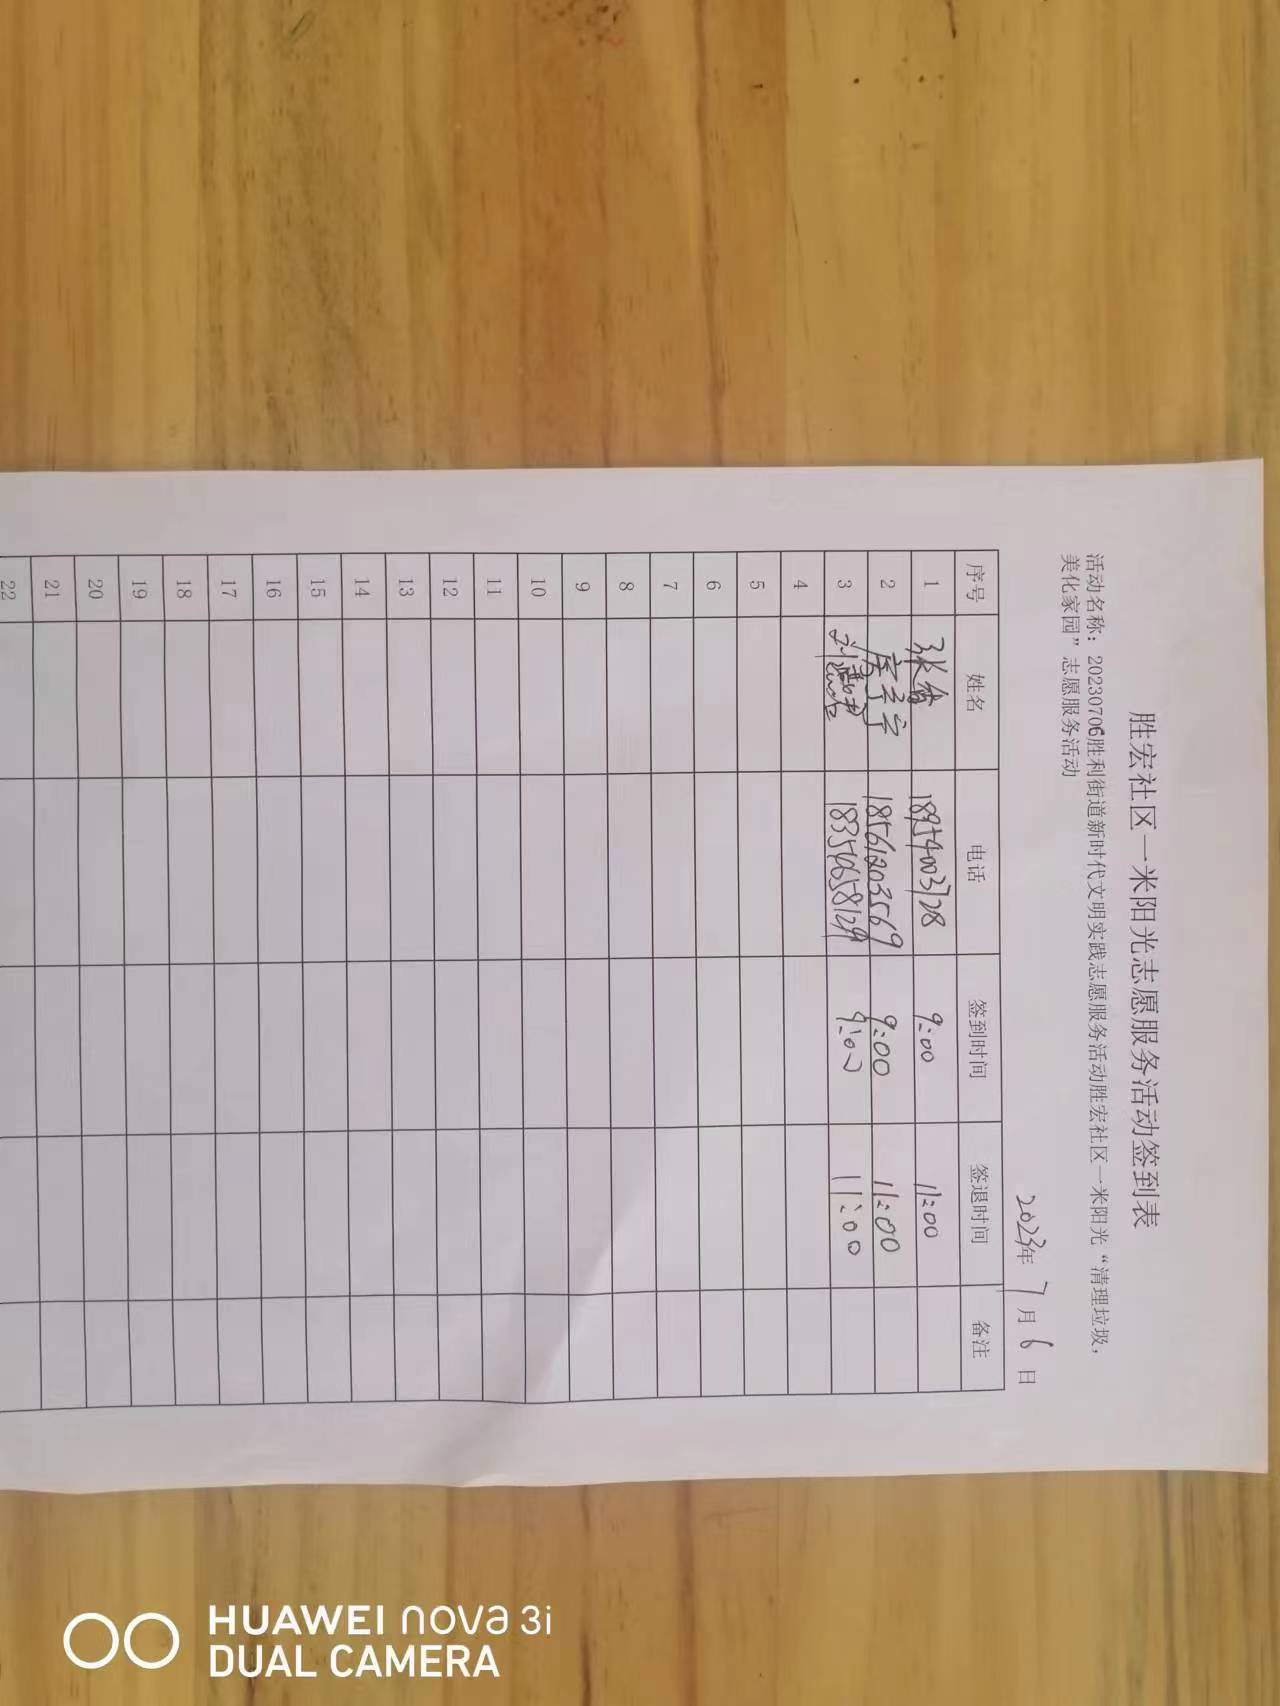 胜宏社区一米阳光志愿服务活动签到表
活动名称：20230706胜利街道新时代文明实践志愿服务活动胜宏社区一米阳光“清理垃圾，
美化家园”志愿服务活动
2023年 7 月 6 日
序号 姓名 电话 签到时间 签退时间 备注
1 18954003128 9:00 11:00
2 18561203569 9:00 11:00
3 18354658129 9:00 11:00
4
5
6
7
8
9
10
11
12
13
14
15
16
17
18
19
20
21
22
HUAWEI nova 3i
DUAL CAMERA